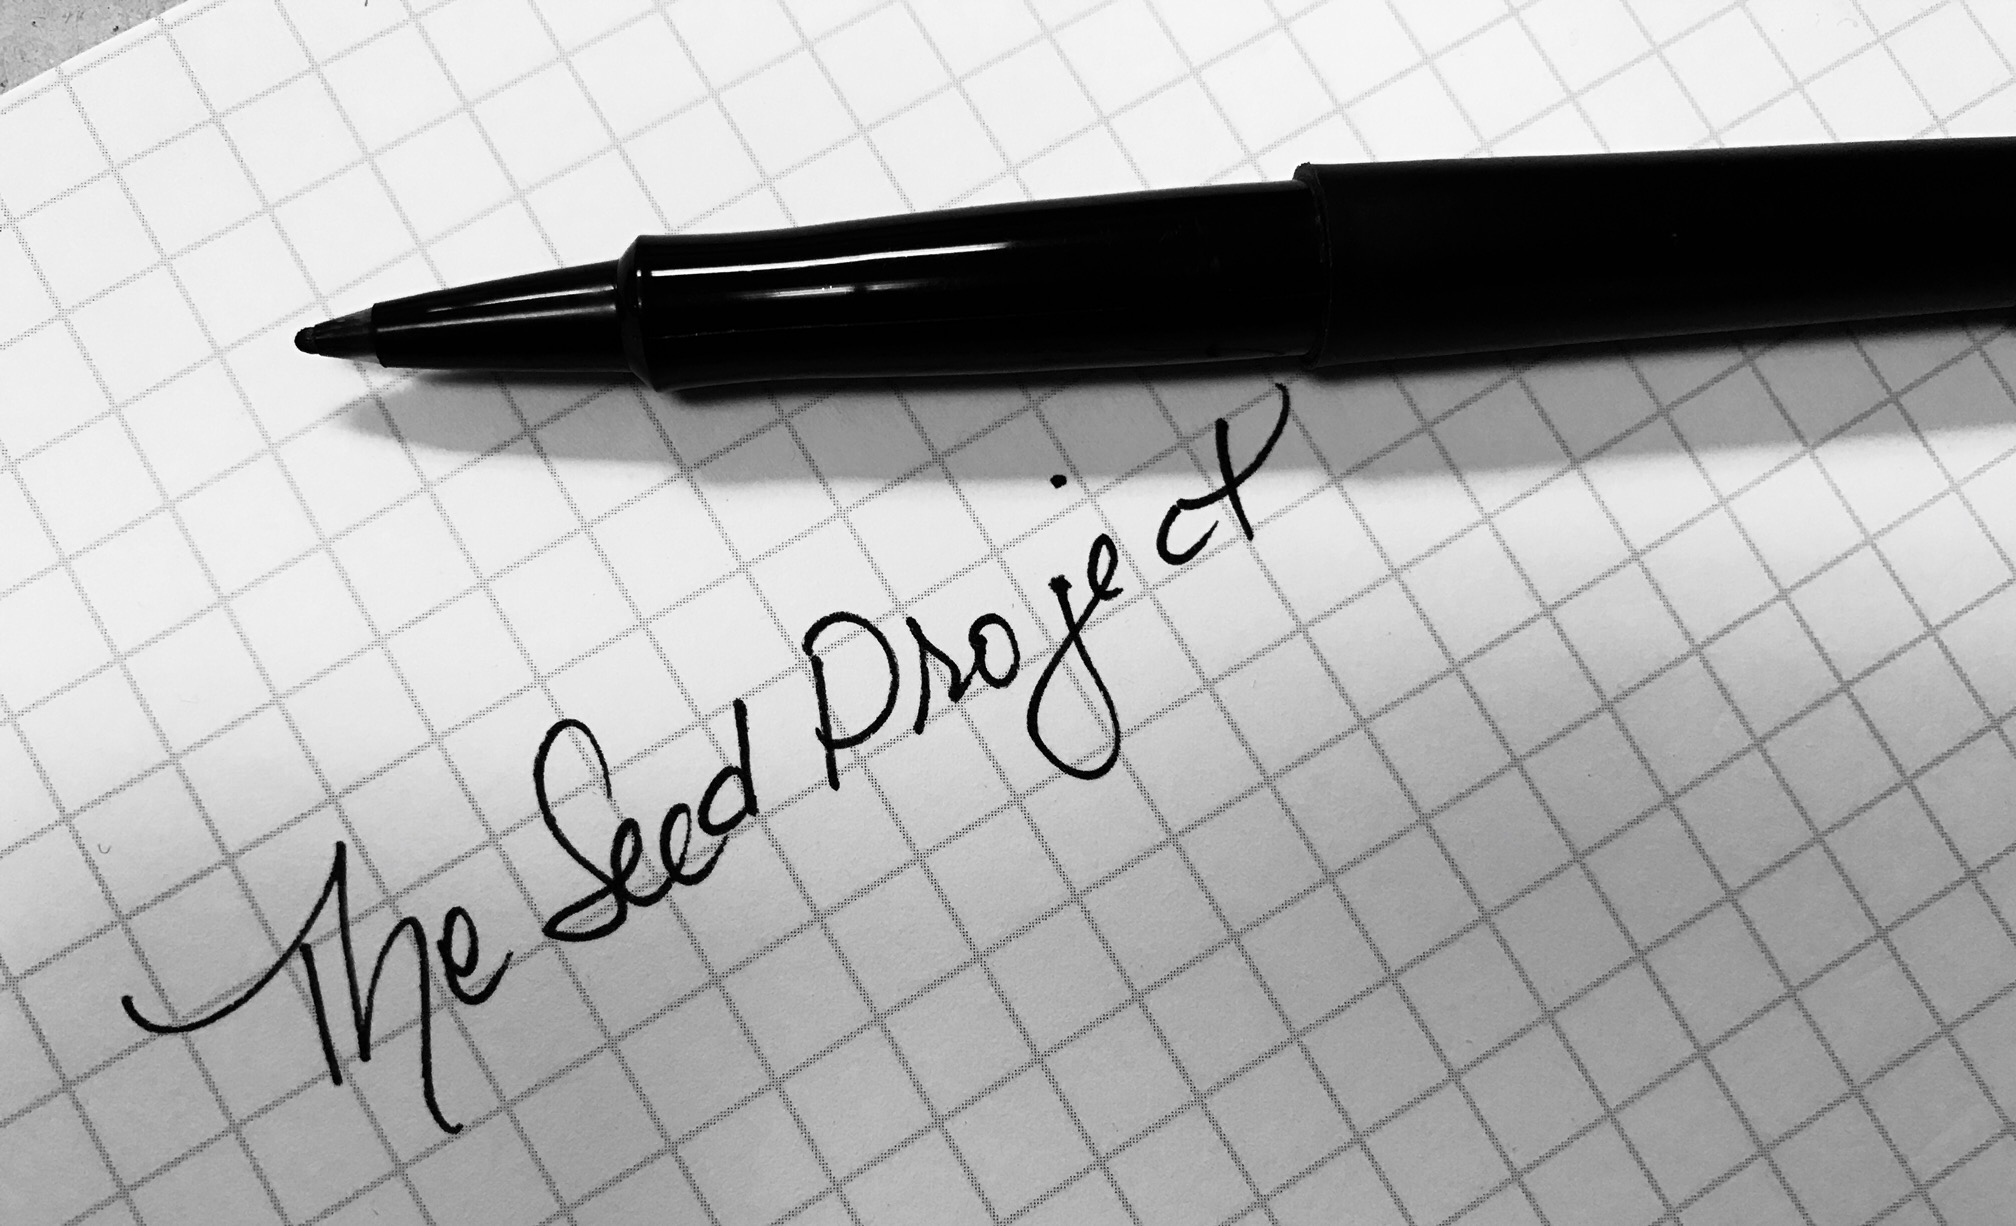 The Seed Project